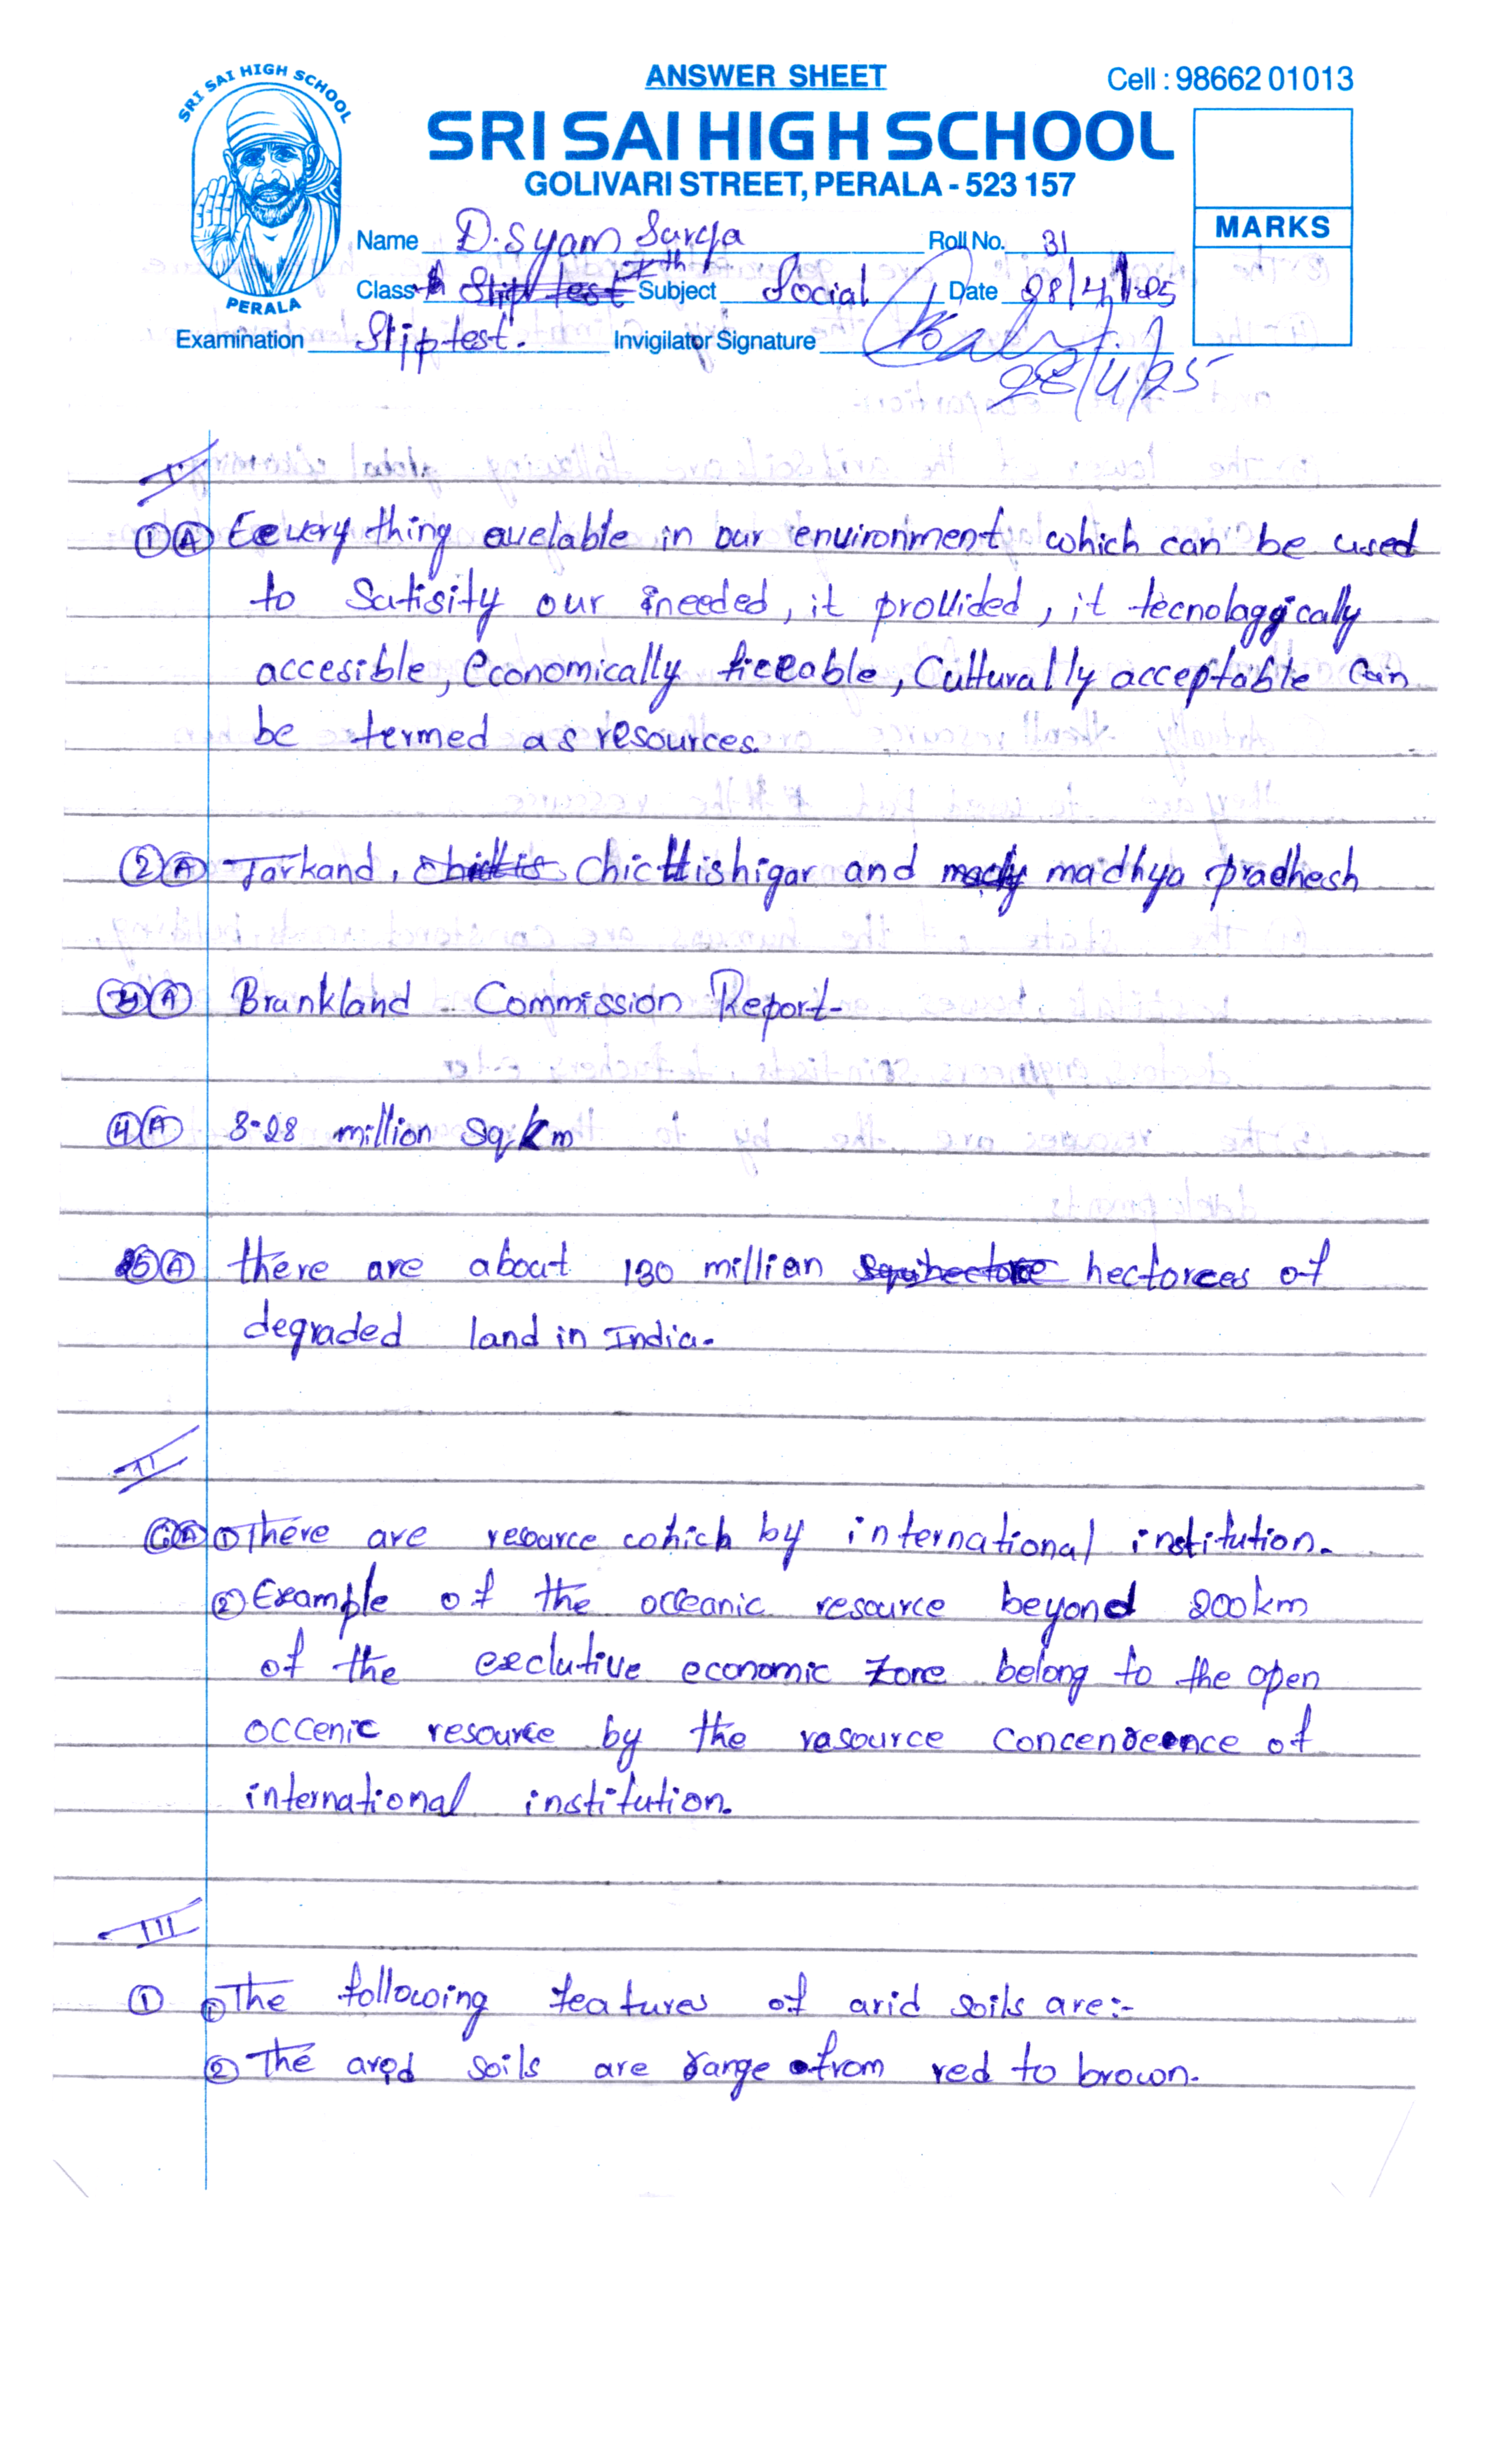 ANSWER SHEET
Cell : 98662 01013
SRI SAI HIGH SCHOOL
PERALA
SRI SAI HIGH SCHOOL
GOLIVARI STREET, PERALA - 523 157
MARKS
Name D. Syam Surya Roll No. 31
Class Xth Subject Social Date 28/4/
Examination Sliptest. Invigilator Signature
28/4/25
I
1 A Eevery thing avelable in our environment which can be used
to Satisity our needed, it provided, it tecnolaggically
accesible, economically , Culturally acceptable Can
be termed as resources.
2 A Jarkand, Chicttishigar and madhya pradhesh
3 A Brunkland Commission Report-
4 A 3-28 million Sq.km
5 A there are about 130 millian hectorces of
degraded land in India.
II
6 A 1 There are resource which by international institution.
2 Example of the occeanic resource beyond 200km
of the exclutive economic zone belong to the open
occenic resource by the rasource of
international institution.
III
1 1 The following features of arid soils are:-
2 The arid soils are range from red to brown.